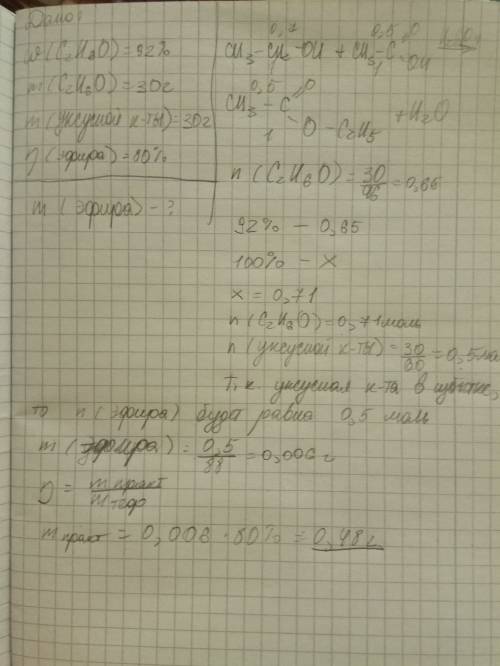 Дано:
ω(C₂H₈O)=92%
m(C₂H₈O)=30г
m(уксусной к-ты)=30г
η(эфира)=80%
m(эфира)-?
0,7 0,5 O
CH₃-CH₂-OH + CH₃-C OH
1
0,5 O
CH₃-C O-C₂H₅ + H₂O
1
n(C₂H₆O)=30/46=0,65
92% - 0,65
100% - x
x = 0,71
n(C₂H₈O)=0,71моль
n(уксусной к-ты)=30/60=0,5мо
Т.к. уксусная к-та в
то n(эфира) будет равна 0,5 моль
m(эфира)=0,5/88=0,006г
η=mпракт/mтеор
mпракт=0,006·80%=0,48г